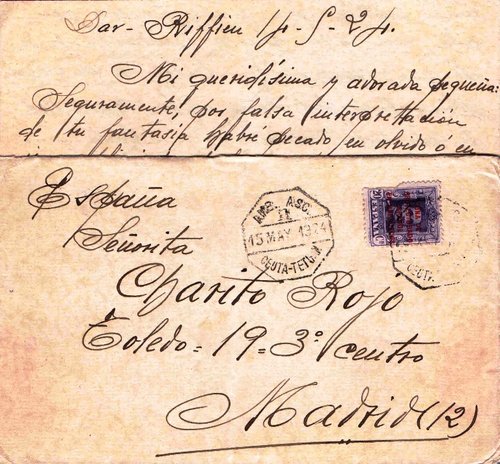 Dar-Riffien 14-5-24.
Mi queridísima y adorada pequeña:
Seguramente, por falsa interpretación
de tu fantasía habré pecado en olvido ó en
España
Señorita
Charito Rojo
Toledo=19=3º centro
Madrid (12)
AMB. ASC.
II
15 MAY 1924
CEUTA-TETU
ESPAÑA
CEUTA